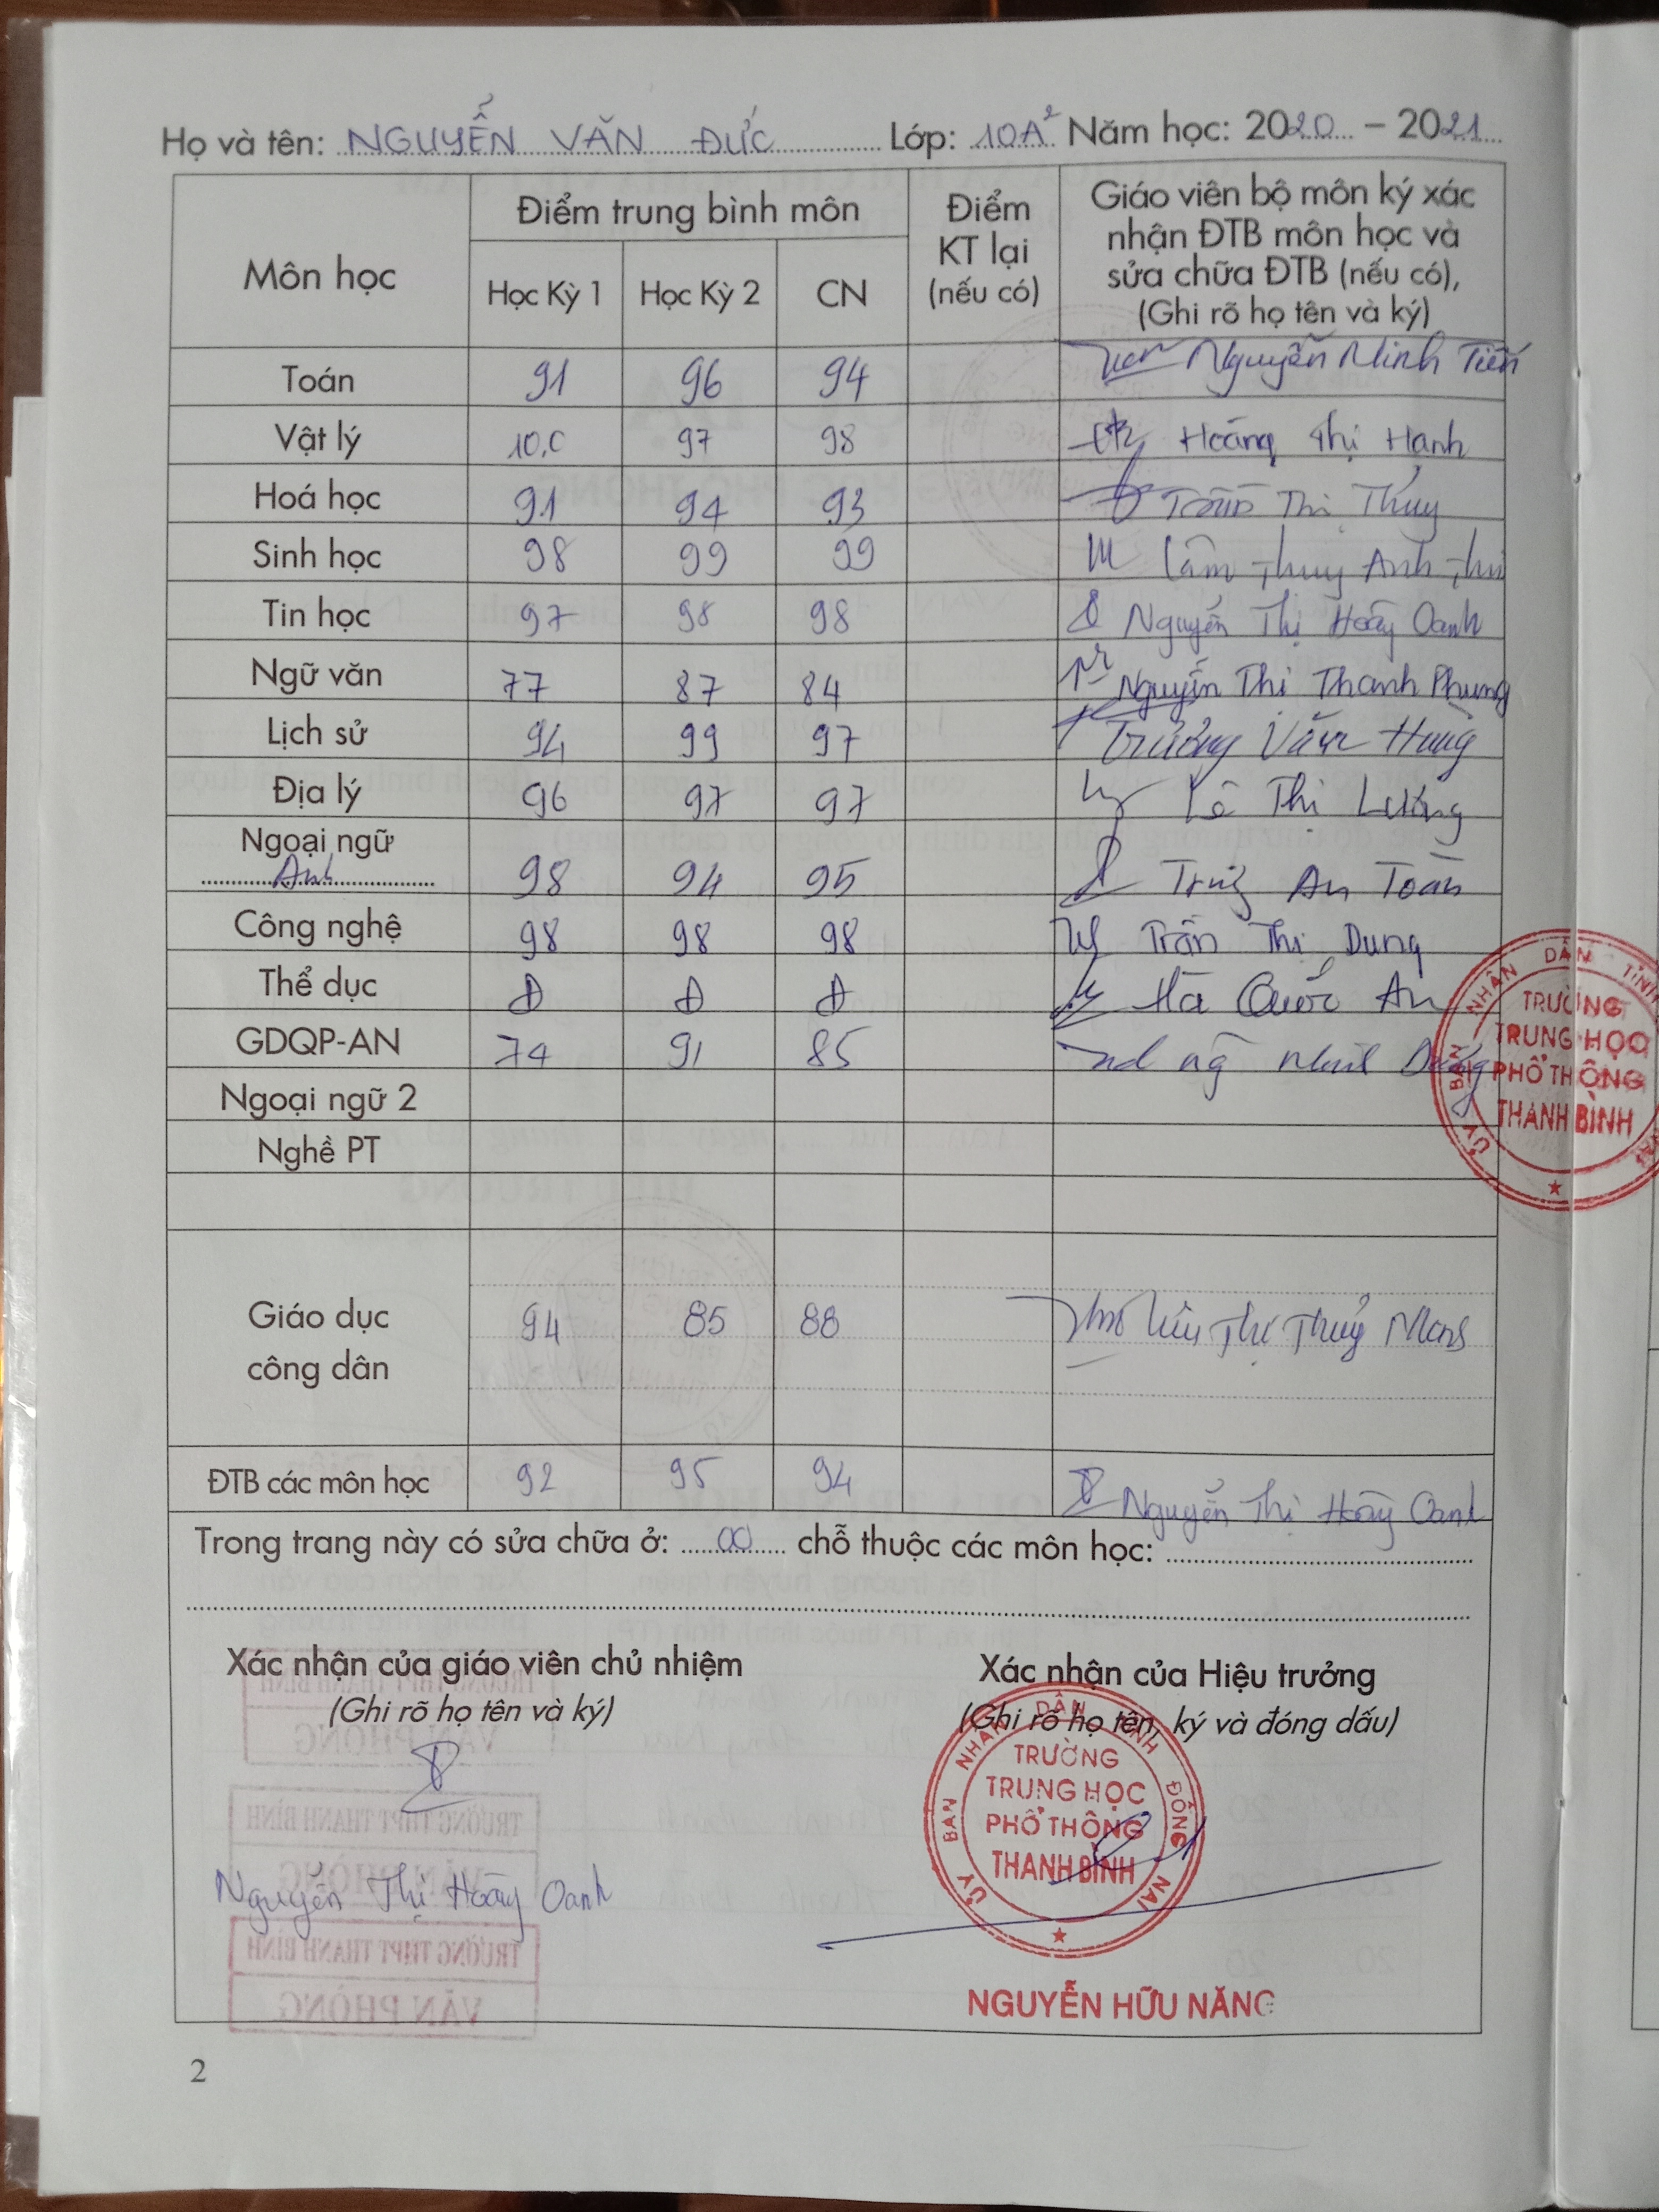 Họ và tên: NGUYỄN VĂN ĐỨC Lớp: 10A2 Năm học: 2020 – 2021
Môn học
Điểm trung bình môn
Học Kỳ 1 Học Kỳ 2 CN
Điểm
KT lại
(nếu có)
Giáo viên bộ môn ký xác
nhận ĐTB môn học và
sửa chữa ĐTB (nếu có),
(Ghi rõ họ tên và ký)
Toán 91 96 94 Nguyễn Minh Tiến
Vật lý 10,0 97 98 Hoàng Thị Hạnh
Hoá học 91 94 93 Thị Thủy
Sinh học 98 99 99 Lâm Thụy Anh Thi
Tin học 97 98 98 Nguyễn Thị Hoày Oanh
Ngữ văn 77 87 84 Nguyễn Thị Thanh Phụng
Lịch sử 94 99 97 Trường Văn Hùng
Địa lý 96 97 97 Lê Thị Lương
Ngoại ngữ
Anh 98 94 95 An Toàn
Công nghệ 98 98 98 Trần Thị Dung
Thể dục Đ Đ Đ Hà Quốc An
GDQP-AN 74 91 85
Ngoại ngữ 2
Nghề PT
Giáo dục
công dân 94 85 88 Thị Thuỷ
ĐTB các môn học 92 95 94 Nguyễn Thị Hoày Oanh
Trong trang này có sửa chữa ở: 00 chỗ thuộc các môn học:
ỦY BAN NHÂN DÂN TỈNH
TRƯỜNG
TRUNG HỌC
PHỔ THÔNG
THANH BÌNH
Xác nhận của giáo viên chủ nhiệm
(Ghi rõ họ tên và ký)
Nguyễn Thị Hoày Oanh
Xác nhận của Hiệu trưởng
(Ghi rõ họ tên, ký và đóng dấu)
ỦY BAN NHÂN DÂN TỈNH ĐỒNG NAI
TRƯỜNG
TRUNG HỌC
PHỔ THÔNG
THANH BÌNH
NGUYỄN HỮU NĂNG
2